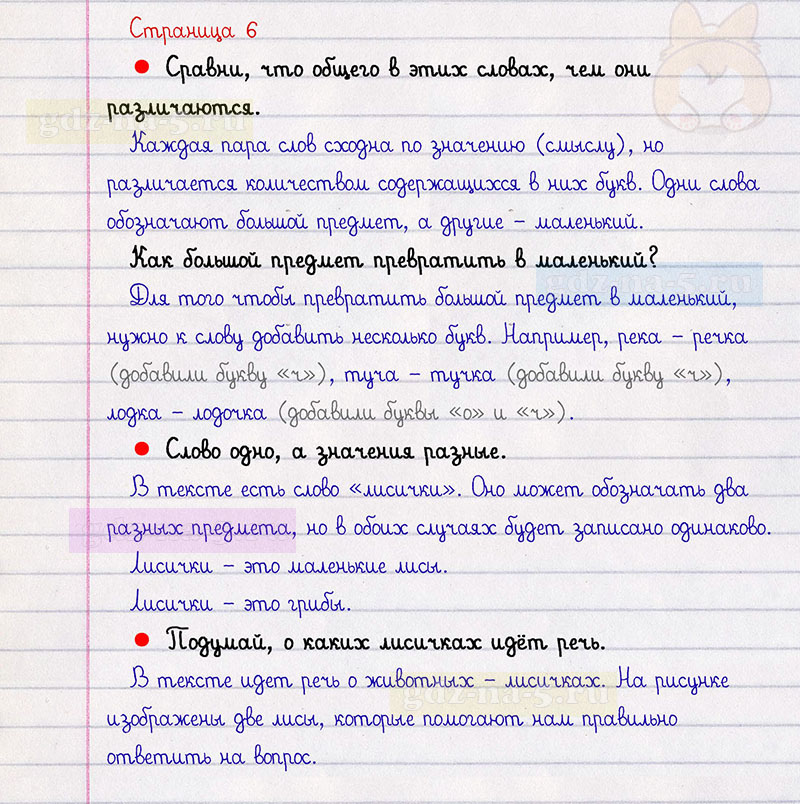 Страница 6
● Сравни, что общего в этих словах, чем они
различаются.
gdz-na-5.ru
Каждая пара слов сходна по значению (смыслу), но
различается количеством содержащихся в них букв. Одни слова
обозначают большой предмет, а другие – маленький.
Как большой предмет превратить в маленький?
gdz-na-5.ru
Для того чтобы превратить большой предмет в маленький,
нужно к слову добавить несколько букв. Например, река – речка
(добавили букву «ч»), туча – тучка (добавили букву «ч»),
лодка – лодочка (добавили буквы «о» и «ч»).
● Слово одно, а значения разные.
В тексте есть слово «лисички». Оно может обозначать два
разных предмета, но в обоих случаях будет записано одинаково.
Лисички – это маленькие лисы.
Лисички – это грибы.
● Подумай, о каких лисичках идёт речь.
В тексте идет речь о животных – лисичках. На рисунке
gdz-na-5.ru
изображены две лисы, которые помогают нам правильно
ответить на вопрос.